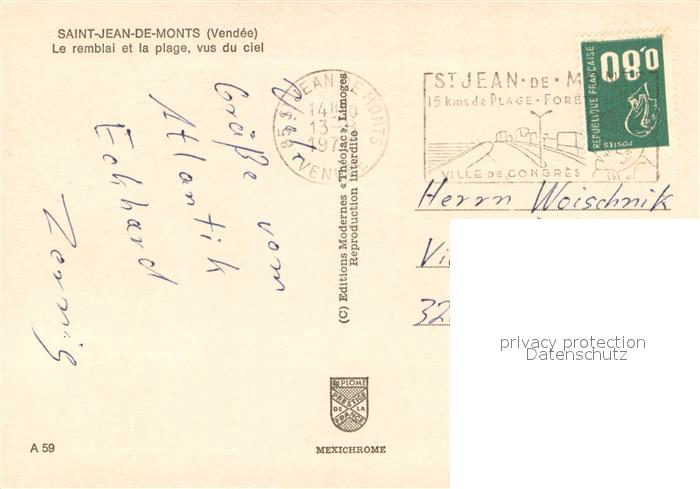 SAINT-JEAN-DE-MONTS (Vendée)
Le remblai et la plage, vus du ciel
Viele
Grüße vom
Atlantik
Eckhard
(C) Editions Modernes «Théojac», Limoges
Reproduction Interdite
JEAN DE MONTS
14
13
197
VENDÉE
ST JEAN·DE·M
15 kms de PLAGE·FORÊ
VILLE DE CONGRÈS
0,80
REPUBLIQUE FRANÇAISE
POSTES
Herrn Woischnik
Vi
32
privacy protection
Datenschutz
DIPLOME
PRESTIGE
DE LA
FRANCE
A 59
MEXICHROME